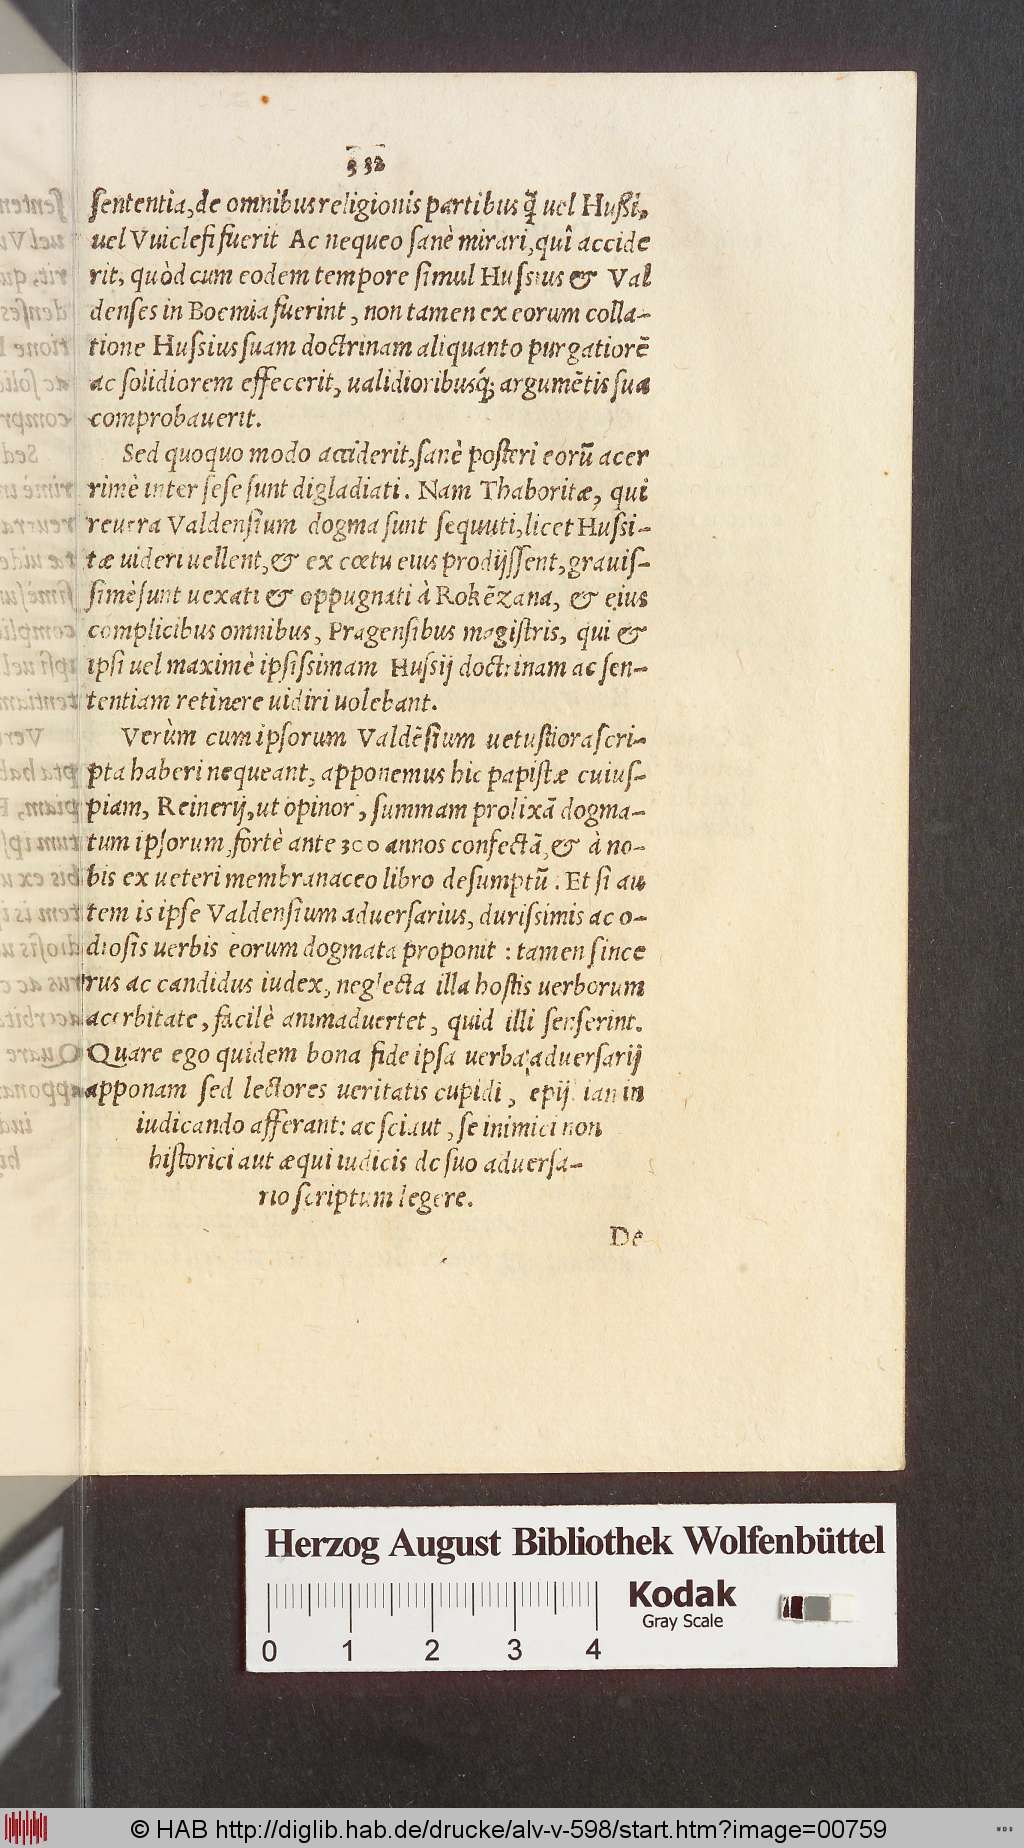 332
sententia, de omnibus religionis partibus q̃ uel Hussi,
uel Vuiclefi fuerit Ac nequeo sanè mirari, quî accide
rit, quòd cum eodem tempore simul Hussius & Val
denses in Boemia fuerint, non tamen ex eorum colla-
tione Hussius suam doctrinam aliquanto purgatiorẽ
ac solidiorem effecerit, ualidioribusq́; argumẽtis sua
comprobauerit.
Sed quoquo modo acciderit, sanè posteri eorũ acer
rimè inter sese sunt digladiati. Nam Thaboritæ, qui
reuera Valdensium dogma sunt sequuti, licet Hussi-
tæ uideri uellent, & ex cœtu eius prodijssent, grauis-
simè sunt uexati & oppugnati à Rokẽzana, & eius
complicibus omnibus, Pragensibus magistris, qui &
ipsi uel maximè ipsissimam Hussij doctrinam ac sen-
tentiam retinere uidiri uolebant.
Verùm cum ipsorum Valdẽsium uetustiora scri-
pta haberi nequeant, apponemus hic papistæ cuius-
piam, Reinerij, ut opinor, summam prolixã dogma-
tum ipsorum, fortè ante 300 annos confectã, & à no-
bis ex ueteri membranaceo libro desumptũ. Et si au
tem is ipse Valdensium aduersarius, durissimis ac o-
diosis uerbis eorum dogmata proponit : tamen since
rus ac candidus iudex, neglecta illa hostis uerborum
acerbitate, facilè animaduertet, quid illi senserint.
Quare ego quidem bona fide ipsa uerba aduersarij
apponam sed lectores ueritatis cupidi, epij. ian in
iudicando afferant: ac sciaut, se inimici non
historici aut æqui iudicis de suo aduersa-
rio scriptum legere.
De
Herzog August Bibliothek Wolfenbüttel
0 1 2 3 4
Kodak
Gray Scale
© HAB http://diglib.hab.de/drucke/alv-v-598/start.htm?image=00759